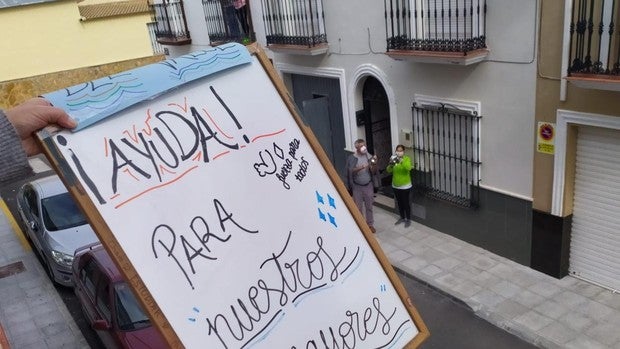 ¡AYUDA!
fuerza para
todos
PARA
"nuestros
mayores"